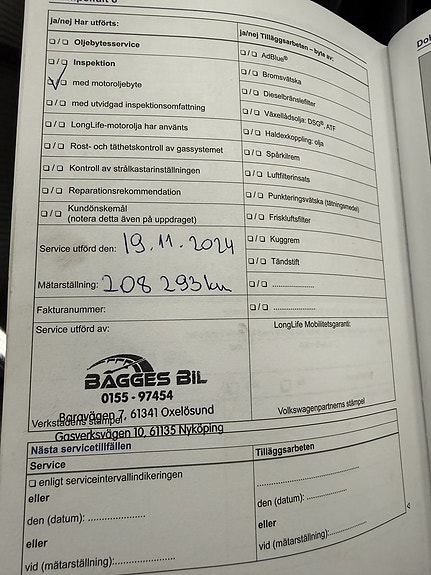 ja/nej Har utförts:
❏ / ❏ Oljebytesservice
❏ / ❏ Inspektion
❏ / ❏ med motoroljebyte
❏ / ❏ med utvidgad inspektionsomfattning
❏ / ❏ LongLife-motorolja har använts
❏ / ❏ Rost- och täthetskontroll av gassystemet
❏ / ❏ Kontroll av strålkastarinställningen
❏ / ❏ Reparationsrekommendation
❏ / ❏ Kundönskemål
(notera detta även på uppdraget)
ja/nej Tilläggsarbeten – byte av:
❏ / ❏ AdBlue®
❏ / ❏ Bromsvätska
❏ / ❏ Dieselbränslefilter
❏ / ❏ Växellådsolja: DSG®, ATF
❏ / ❏ Haldexkoppling: olja
❏ / ❏ Spärkilrem
❏ / ❏ Luftfilterinsats
❏ / ❏ Punkteringsvätska (tätningsmedel)
❏ / ❏ Friskluftsfilter
❏ / ❏ Kuggrem
❏ / ❏ Tändstift
❏ / ❏ ....................
❏ / ❏ ....................
Service utförd den: 19.11.2024
Mätarställning: 208 293 km
Fakturanummer:
Service utförd av:
BAGGES BIL
0155 - 97454
Baravägen 7, 61341 Oxelösund
Verkstadens stämpel
Gasverksvägen 10, 61135 Nyköping
LongLife Mobilitetsgaranti:
Volkswagenpartnerns stämpel
Nästa servicetillfällen
Service
❏ enligt serviceintervallindikeringen
eller
den (datum): ..................
eller
vid (mätarställning):..................
Tilläggsarbeten
..............................
den (datum): ..................
eller
vid (mätarställning): ..................